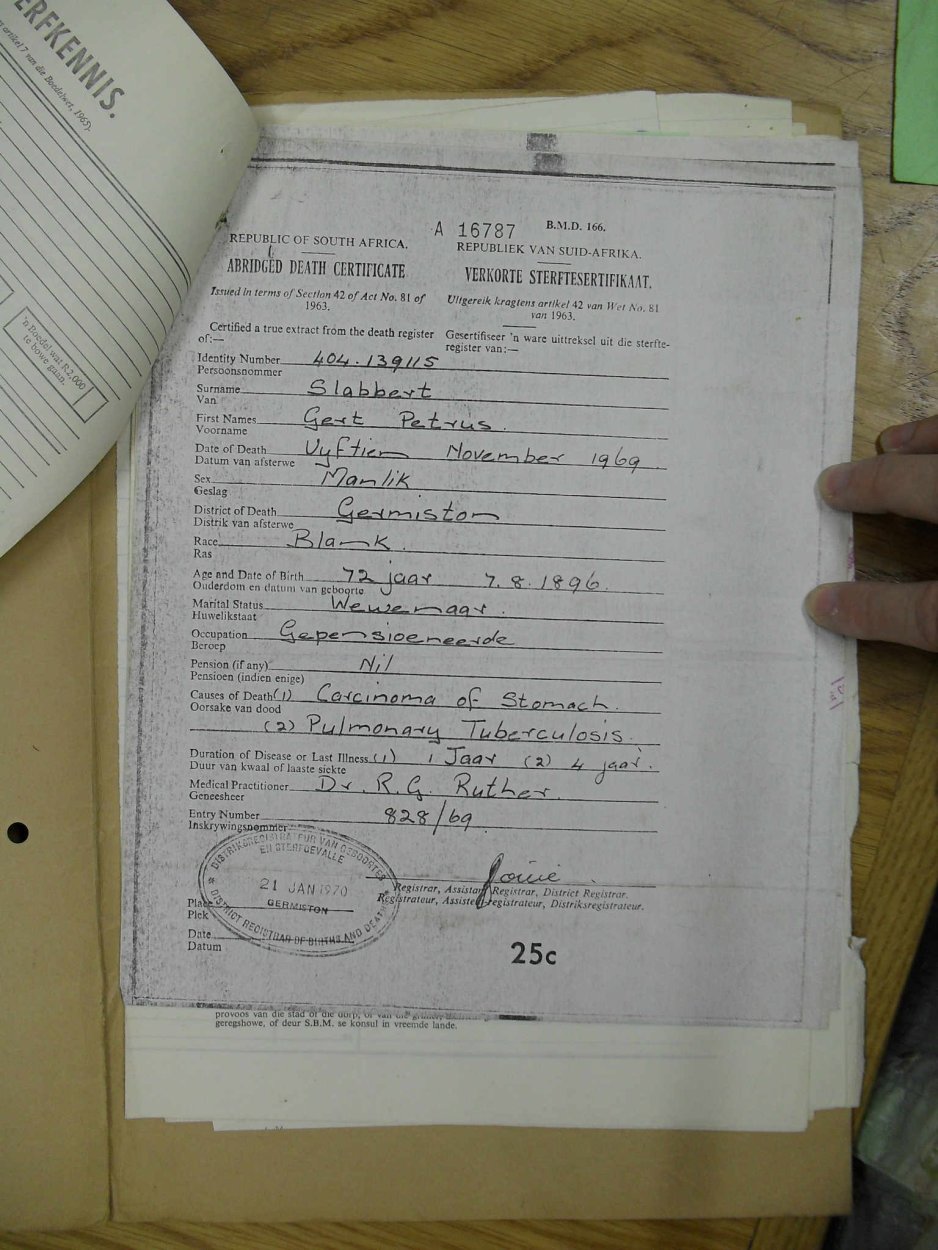 ERFKENNIS.
artikel 7 van die Boedelwet, 1965).
'n Boedel wat R2,000
te bowe gaan.
A 16787 B.M.D. 166.
REPUBLIC OF SOUTH AFRICA. REPUBLIEK VAN SUID-AFRIKA.
ABRIDGED DEATH CERTIFICATE VERKORTE STERFTESERTIFIKAAT.
Issued in terms of Section 42 of Act No. 81 of
1963.
Uitgereik kragtens artikel 42 van Wet No. 81
van 1963.
Certified a true extract from the death register
of:—
Gesertifiseer 'n ware uittreksel uit die sterfte-
register van:—
Identity Number 404.139115
Persoonsnommer
Surname Slabbert
Van
First Names Gert Petrus.
Voorname
Date of Death Vyftien November 1969
Datum van afsterwe
Sex Manlik
Geslag
District of Death Germiston
Distrik van afsterwe
Race Blank.
Ras
Age and Date of Birth 72 jaar 7.8.1896.
Ouderdom en datum van geboorte
Marital Status Wewenaar.
Huwelikstaat
Occupation Gepensioeneerde
Beroep
Pension (if any) Nil
Pensioen (indien enige)
Causes of Death (1) Carcinoma of Stomach.
Oorsake van dood
(2) Pulmonary Tuberculosis.
Duration of Disease or Last Illness (1) 1 Jaar (2) 4 jaar.
Duur van kwaal of laaste siekte
Medical Practitioner Dr. R.G. Ruther.
Geneesheer
Entry Number 828/69
Inskrywingsnommer
DISTRIKSREGISTRATEUR VAN GEBOORTES
EN STERFGEVALLE
21 JAN 1970
GERMISTON
DISTRICT REGISTRAR OF BIRTHS AND DEATHS
Registrar, Assistant Registrar, District Registrar.
Registrateur, Assistent-registrateur, Distriksregistrateur.
Place
Plek
Date
Datum
25c
provoos van die stad of die dorp, of van die
geregshowe, of deur S.B.M. se konsul in vreemde lande.